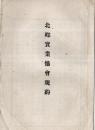 北郷實業協會規約